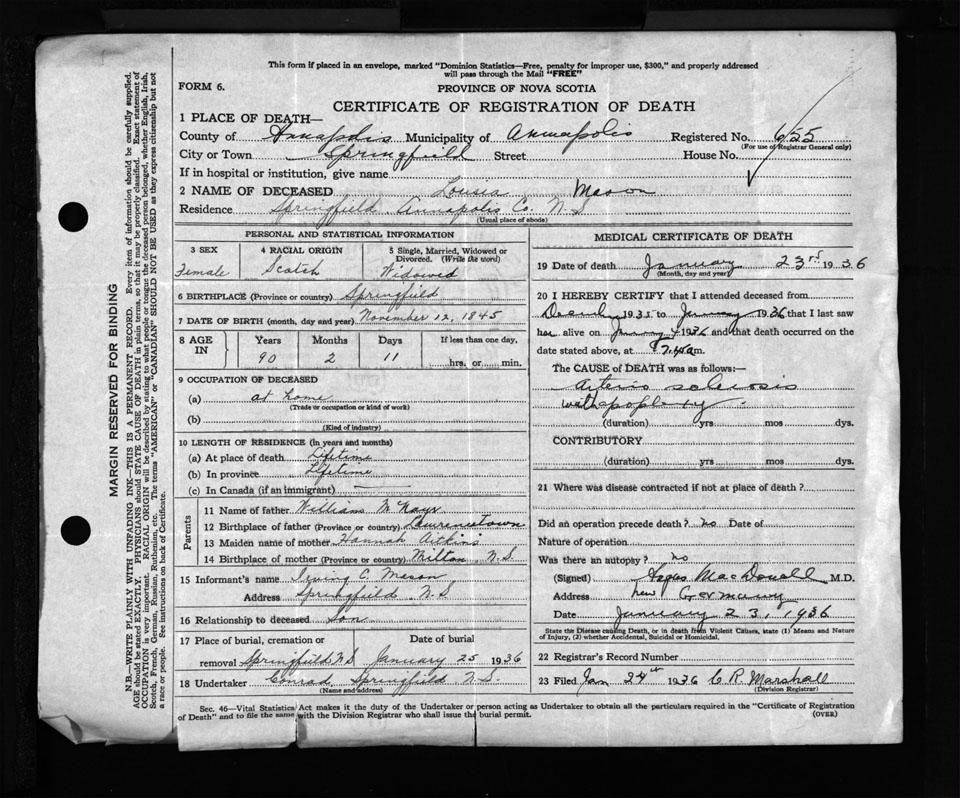 This form if placed in an envelope, marked "Dominion Statistics—Free, penalty for improper use, $300," and properly addressed
will pass through the Mail "FREE"
FORM 6.
PROVINCE OF NOVA SCOTIA
CERTIFICATE OF REGISTRATION OF DEATH
1 PLACE OF DEATH—
County of Annapolis Municipality of Annapolis Registered No. 655
(For use of Registrar General only)
City or Town Springfield Street House No.
If in hospital or institution, give name
2 NAME OF DECEASED Louisa Mason
Residence Springfield Annapolis Co. N.S
(Usual place of abode)
PERSONAL AND STATISTICAL INFORMATION
3 SEX 4 RACIAL ORIGIN 5 Single, Married, Widowed or
Divorced. (Write the word)
Female Scotch Widowed
6 BIRTHPLACE (Province or country) Springfield
7 DATE OF BIRTH (month, day and year) November 12, 1845
8 AGE IN Years Months Days If less than one day,
90 2 11 hrs. or min.
9 OCCUPATION OF DECEASED
(a) at home
(Trade or occupation or kind of work)
(b)
(Kind of industry)
10 LENGTH OF RESIDENCE (in years and months)
(a) At place of death Lifetime
(b) In province Lifetime
(c) In Canada (if an immigrant)
Parents
11 Name of father William McKay
12 Birthplace of father (Province or country) Lawrencetown
13 Maiden name of mother Hannah
14 Birthplace of mother (Province or country) Milton N.S
15 Informant's name Irving C. Mason
Address Springfield N.S
16 Relationship to deceased Son
17 Place of burial, cremation or Date of burial
removal Springfield N.S January 25 1936
18 Undertaker Conrad Springfield N.S.
(Name and address)
MEDICAL CERTIFICATE OF DEATH
19 Date of death January 23rd 1936
(Month, day and year)
20 I HEREBY CERTIFY that I attended deceased from
1935 to January 1936 that I last saw
her alive on 1936 and that death occurred on the
date stated above, at m.
The CAUSE of DEATH was as follows:—
Arterio sclerosis
with apoplexy
(duration) yrs mos dys.
CONTRIBUTORY
(duration) yrs. mos. dys.
21 Where was disease contracted if not at place of death?
Did an operation precede death? no Date of
Nature of operation
Was there an autopsy? no
(Signed) Angus MacDonall M.D.
Address New Germany
Date January 23, 1936
State the Disease causing Death, or in death from Violent Causes, state (1) Means and Nature
of Injury, (2) whether Accidental, Suicidal or Homicidal.
22 Registrar's Record Number
23 Filed Jan 24th 1936 C R Marshall
(Division Registrar)
Sec. 46—Vital Statistics Act makes it the duty of the Undertaker or person acting as Undertaker to obtain all the particulars required in the "Certificate of Registration
of Death" and to file the same with the Division Registrar who shall issue the burial permit.
(OVER)
MARGIN RESERVED FOR BINDING
N.B.—WRITE PLAINLY WITH UNFADING INK—THIS IS A PERMANENT RECORD. Every item of information should be carefully supplied.
AGE should be stated EXACTLY. PHYSICIANS should STATE CAUSE OF DEATH in plain terms, so that it may be properly classified. Exact statement of
OCCUPATION is very important. RACIAL ORIGIN will be described by stating to what people or tongue the deceased person belonged, whether English, Irish,
Scotch, French, German, Russian, Ruthenian, etc. The terms "AMERICAN" or "CANADIAN" SHOULD NOT BE USED as they express citizenship but not
a race or people. See instructions on back of Certificate.